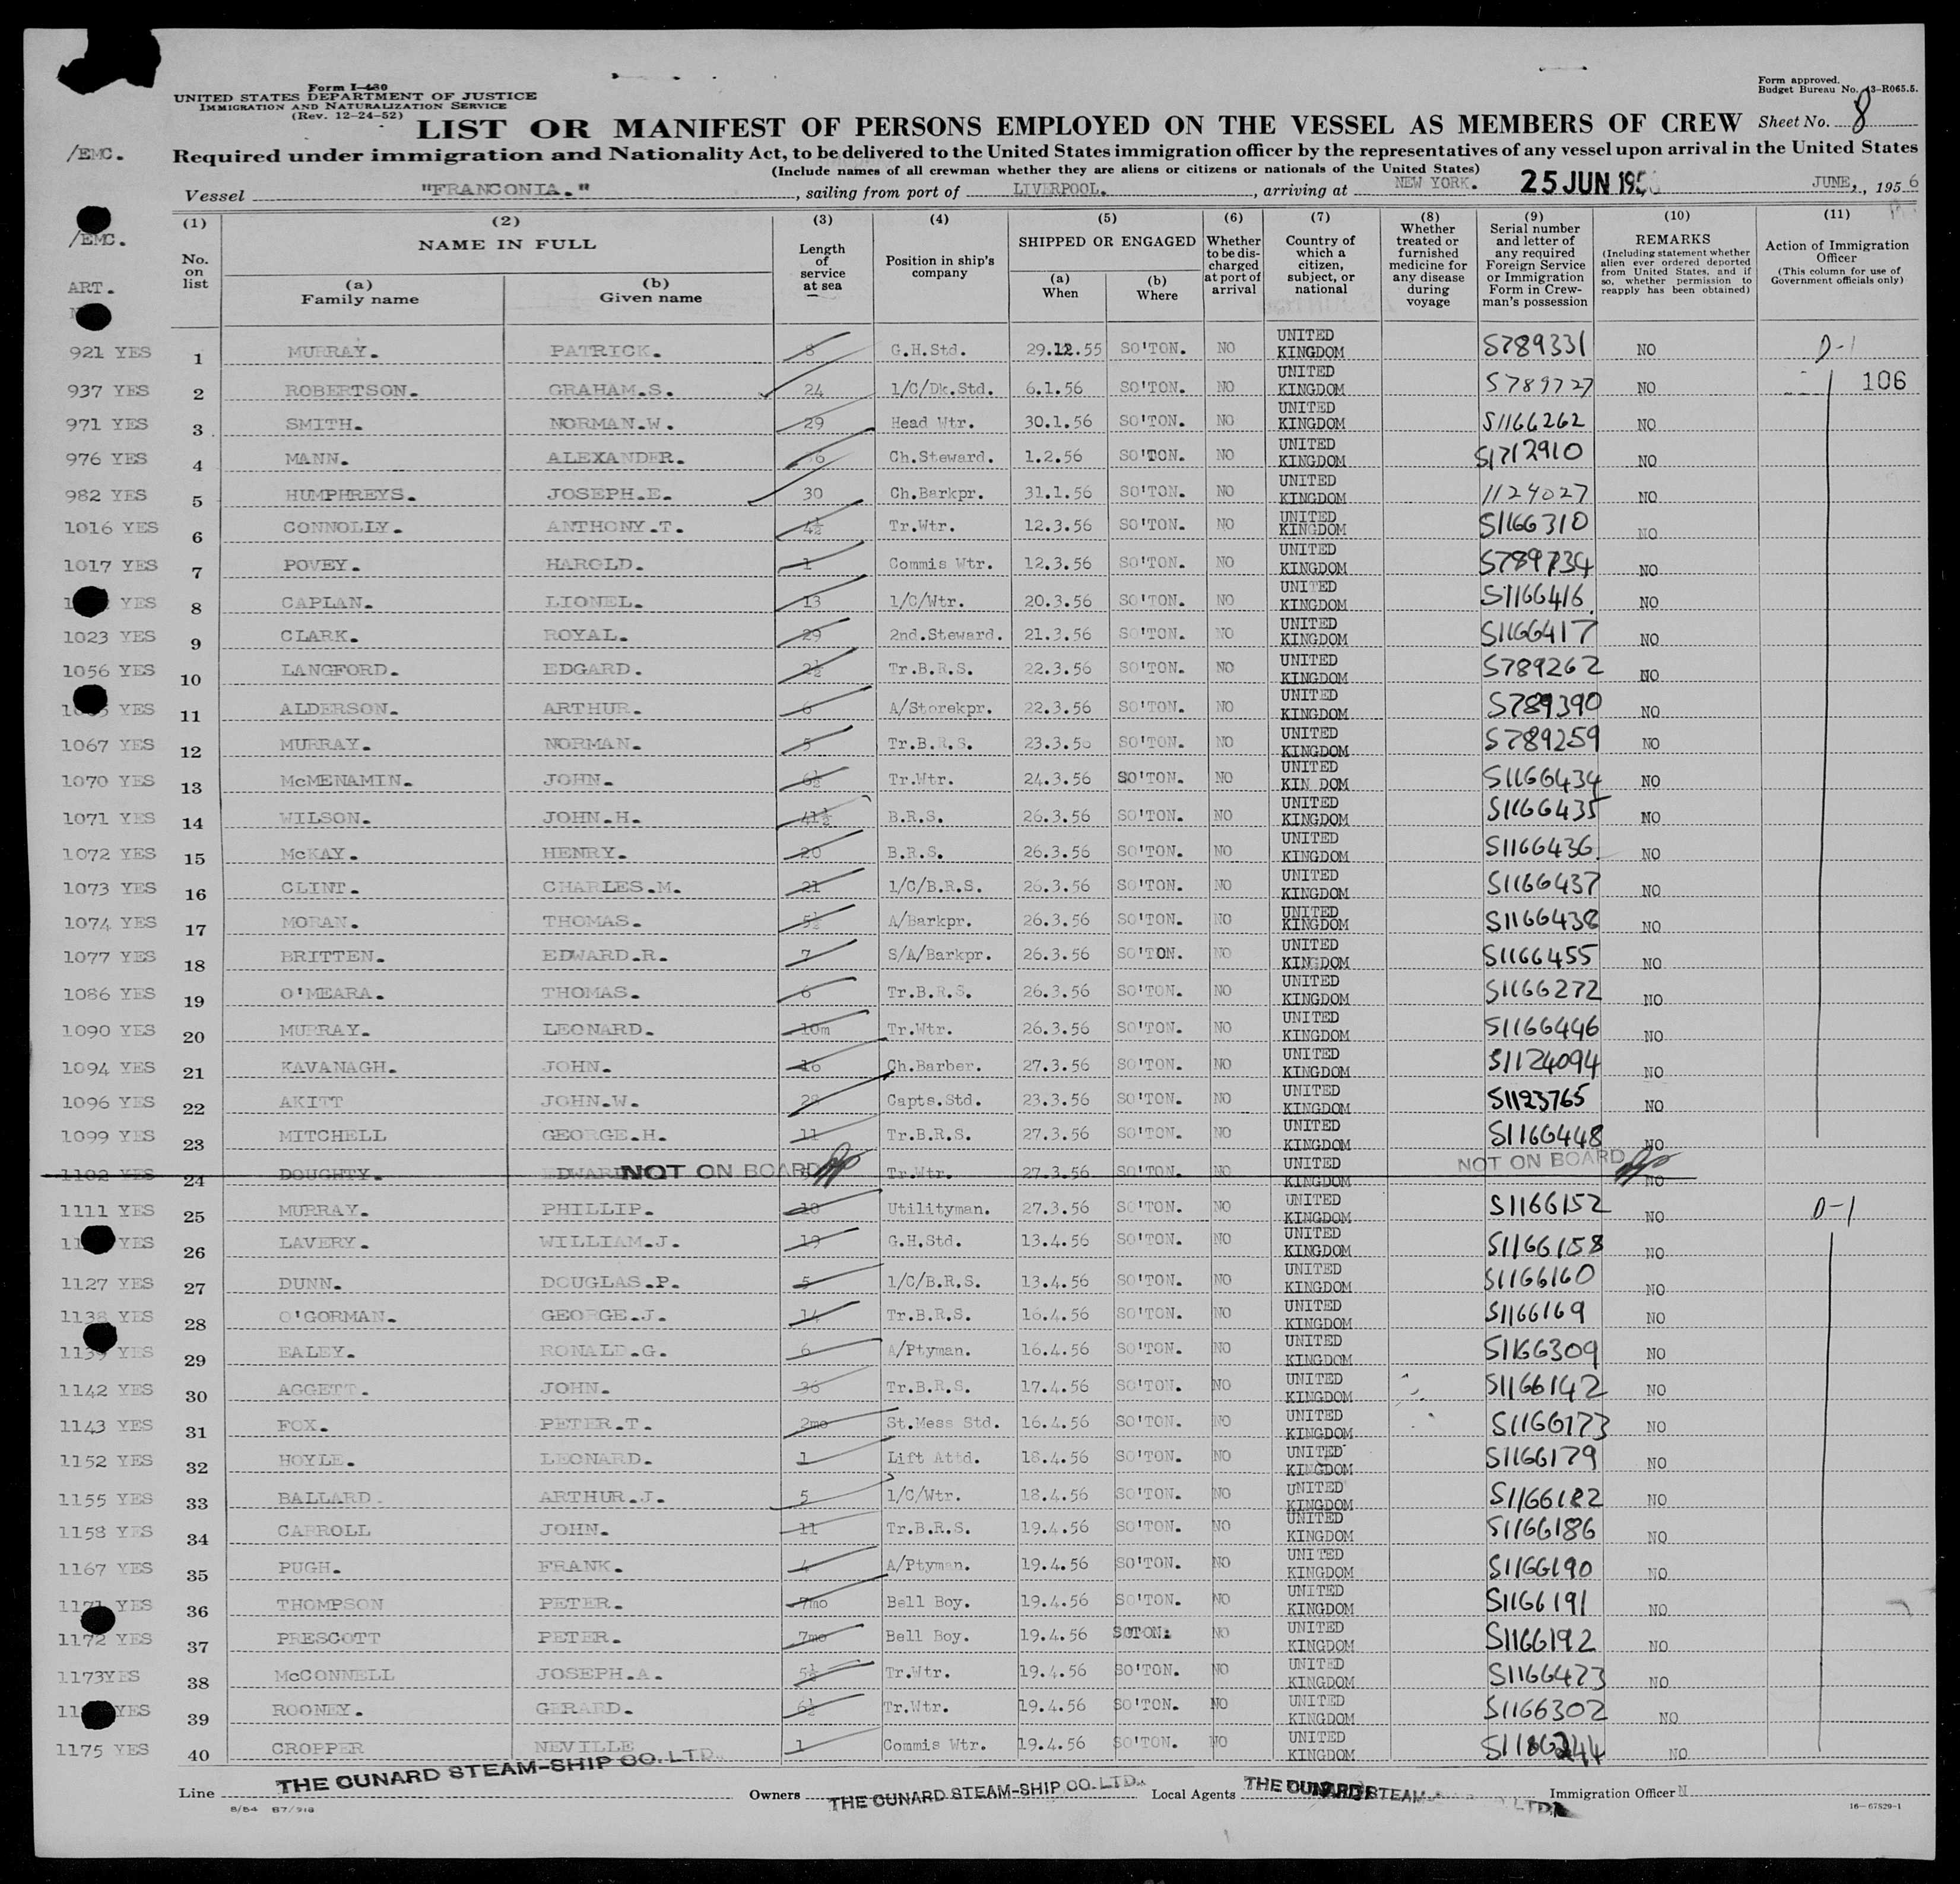 Form I-480
UNITED STATES DEPARTMENT OF JUSTICE
IMMIGRATION AND NATURALIZATION SERVICE
(Rev. 12-24-52)
Form approved.
Budget Bureau No. 43-R065.5.
LIST OR MANIFEST OF PERSONS EMPLOYED ON THE VESSEL AS MEMBERS OF CREW Sheet No. 8
/EMC.
Required under immigration and Nationality Act, to be delivered to the United States immigration officer by the representatives of any vessel upon arrival in the United States
(Include names of all crewman whether they are aliens or citizens or nationals of the United States)
Vessel "FRANCONIA." , sailing from port of LIVERPOOL. , arriving at NEW YORK. 25 JUN 195 JUNE, , 1956
/EMC.
ART.
(1) No. on list
(2) NAME IN FULL
(a) Family name
(b) Given name
(3) Length of service at sea
(4) Position in ship's company
(5) SHIPPED OR ENGAGED
(a) When
(b) Where
(6) Whether to be discharged at port of arrival
(7) Country of which a citizen, subject, or national
(8) Whether treated or furnished medicine for any disease during voyage
(9) Serial number and letter of any required Foreign Service or Immigration Form in Crewman's possession
(10) REMARKS (Including statement whether alien ever ordered deported from United States, and if so, whether permission to reapply has been obtained)
(11) Action of Immigration Officer (This column for use of Government officials only)
921 YES 1 MURRAY. PATRICK. 8 G.H.Std. 29.12.55 SO'TON. NO UNITED KINGDOM S789331 NO D-1
937 YES 2 ROBERTSON. GRAHAM.S. 24 1/C/Dk.Std. 6.1.56 SO'TON. NO UNITED KINGDOM S789727 NO 106
971 YES 3 SMITH. NORMAN.W. 29 Head Wtr. 30.1.56 SO'TON. NO UNITED KINGDOM S1166262 NO
976 YES 4 MANN. ALEXANDER. Ch.Steward. 1.2.56 SO'TON. NO UNITED KINGDOM S1712910 NO
982 YES 5 HUMPHREYS. JOSEPH.E. 30 Ch.Barkpr. 31.1.56 SO'TON. NO UNITED KINGDOM 1124027 NO
1016 YES 6 CONNOLLY. ANTHONY.T. 4½ Tr.Wtr. 12.3.56 SO'TON. NO UNITED KINGDOM S1166310 NO
1017 YES 7 POVEY. HAROLD. 1 Commis Wtr. 12.3.56 SO'TON. NO UNITED KINGDOM S789734 NO
YES 8 CAPLAN. LIONEL. 13 1/C/Wtr. 20.3.56 SO'TON. NO UNITED KINGDOM S1166416 NO
1023 YES 9 CLARK. ROYAL. 29 2nd.Steward. 21.3.56 SO'TON. NO UNITED KINGDOM S1166417 NO
1056 YES 10 LANGFORD. EDGARD. 2½ Tr.B.R.S. 22.3.56 SO'TON. NO UNITED KINGDOM S789262 NO
YES 11 ALDERSON. ARTHUR. 6 A/Storekpr. 22.3.56 SO'TON. NO UNITED KINGDOM S789390 NO
1067 YES 12 MURRAY. NORMAN. 5 Tr.B.R.S. 23.3.56 SO'TON. NO UNITED KINGDOM S789259 NO
1070 YES 13 McMENAMIN. JOHN. 6½ Tr.Wtr. 24.3.56 SO'TON. NO UNITED KIN DOM S1166434 NO
1071 YES 14 WILSON. JOHN.H. 41½ B.R.S. 26.3.56 SO'TON. NO UNITED KINGDOM S1166435 NO
1072 YES 15 McKAY. HENRY. 20 B.R.S. 26.3.56 SO'TON. NO UNITED KINGDOM S1166436 NO
1073 YES 16 CLINT. CHARLES.M. 21 1/C/B.R.S. 26.3.56 SO'TON. NO UNITED KINGDOM S1166437 NO
1074 YES 17 MORAN. THOMAS. 5½ A/Barkpr. 26.3.56 SO'TON. NO UNITED KINGDOM S1166438 NO
1077 YES 18 BRITTEN. EDWARD.R. 7 S/A/Barkpr. 26.3.56 SO'TON. NO UNITED KINGDOM S1166455 NO
1086 YES 19 O'MEARA. THOMAS. 6 Tr.B.R.S. 26.3.56 SO'TON. NO UNITED KINGDOM S1166272 NO
1090 YES 20 MURRAY. LEONARD. 10m Tr.Wtr. 26.3.56 SO'TON. NO UNITED KINGDOM S1166446 NO
1094 YES 21 KAVANAGH. JOHN. 16 Ch.Barber. 27.3.56 SO'TON. NO UNITED KINGDOM S1124094 NO
1096 YES 22 AKITT JOHN.W. 28 Capts.Std. 23.3.56 SO'TON. NO UNITED KINGDOM S1123765 NO
1099 YES 23 MITCHELL GEORGE.H. 11 Tr.B.R.S. 27.3.56 SO'TON. NO UNITED KINGDOM S1166448 NO
1102 YES 24 DOUGHTY. EDWARD NOT ON BOARD Tr.Wtr. 27.3.56 SO'TON. NO UNITED KINGDOM NOT ON BOARD NO
1111 YES 25 MURRAY. PHILLIP. 18 Utilityman. 27.3.56 SO'TON. NO UNITED KINGDOM S1166152 NO D-1
YES 26 LAVERY. WILLIAM.J. 19 G.H.Std. 13.4.56 SO'TON. NO UNITED KINGDOM S1166158 NO
1127 YES 27 DUNN. DOUGLAS.P. 5 1/C/B.R.S. 13.4.56 SO'TON. NO UNITED KINGDOM S1166160 NO
1138 YES 28 O'GORMAN. GEORGE.J. 14 Tr.B.R.S. 16.4.56 SO'TON. NO UNITED KINGDOM S1166169 NO
1139 YES 29 EALEY. RONALD.G. 6 A/Ptyman. 16.4.56 SO'TON. NO UNITED KINGDOM S1166309 NO
1142 YES 30 AGGETT. JOHN. 36 Tr.B.R.S. 17.4.56 SO'TON. NO UNITED KINGDOM S1166142 NO
1143 YES 31 FOX. PETER.T. 2mo St.Mess Std. 16.4.56 SO'TON. NO UNITED KINGDOM S1166173 NO
1152 YES 32 HOYLE. LEONARD. 1 Lift Attd. 18.4.56 SO'TON. NO UNITED KINGDOM S1166179 NO
1155 YES 33 BALLARD. ARTHUR.J. 5 1/C/Wtr. 18.4.56 SO'TON. NO UNITED KINGDOM S1166182 NO
1158 YES 34 CARROLL JOHN. 11 Tr.B.R.S. 19.4.56 SO'TON. NO UNITED KINGDOM S1166186 NO
1167 YES 35 PUGH. FRANK. 4 A/Ptyman. 19.4.56 SO'TON. NO UNITED KINGDOM S1166190 NO
1171 YES 36 THOMPSON PETER. 7mo Bell Boy. 19.4.56 SO'TON. NO UNITED KINGDOM S1166191 NO
1172 YES 37 PRESCOTT PETER. 7mo Bell Boy. 19.4.56 SOTON. NO UNITED KINGDOM S1166192 NO
1173YES 38 McCONNELL JOSEPH.A. 5½ Tr.Wtr. 19.4.56 SO'TON. NO UNITED KINGDOM S1166423 NO
YES 39 ROONEY. GERARD. 6½ Tr.Wtr. 19.4.56 SO'TON. NO UNITED KINGDOM S1166302 NO
1175 YES 40 CROPPER NEVILLE 1 Commis Wtr. 19.4.56 SO'TON. NO UNITED KINGDOM NO
Line THE CUNARD STEAM-SHIP CO. LTD. Owners THE CUNARD STEAM-SHIP CO. LTD. Local Agents THE CUNARD STEAM LTD. Immigration Officer N
8/54 87/918
16-67529-1